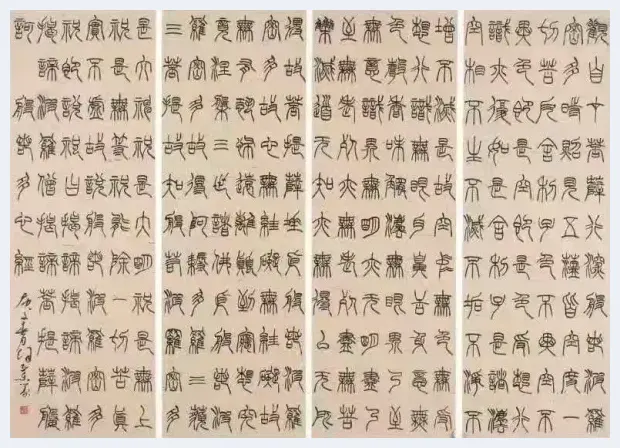 觀自在菩薩行深般若波羅
密多時照見五蘊皆空度一
切苦厄舍利子色不異空不
異色即是空即是色受想行
識亦復如是舍利子是諸法
空相不生不滅不垢不淨不
增不減是故空中無色無受
想行識無眼耳鼻舌身意無
色聲香味觸法無眼界乃至
無意識界無明亦无明盡乃
至無老死亦無老死盡無苦
集滅道无知亦無得以无所
得故菩提薩埵依般若波羅
密多故心無罣礙無罣礙故
無有恐怖遠離顛倒夢想究
竟涅槃三世諸佛依般若波
羅密多故得阿耨多羅三藐
三菩提故知般若波羅密多
是大祝是大明祝是無上
祝是無等祝能除一切苦真
實不虛故說般若波羅密多
祝即說祝曰揭諦揭諦波羅
揭諦波羅僧揭諦菩提薩婆
訶般若多心經